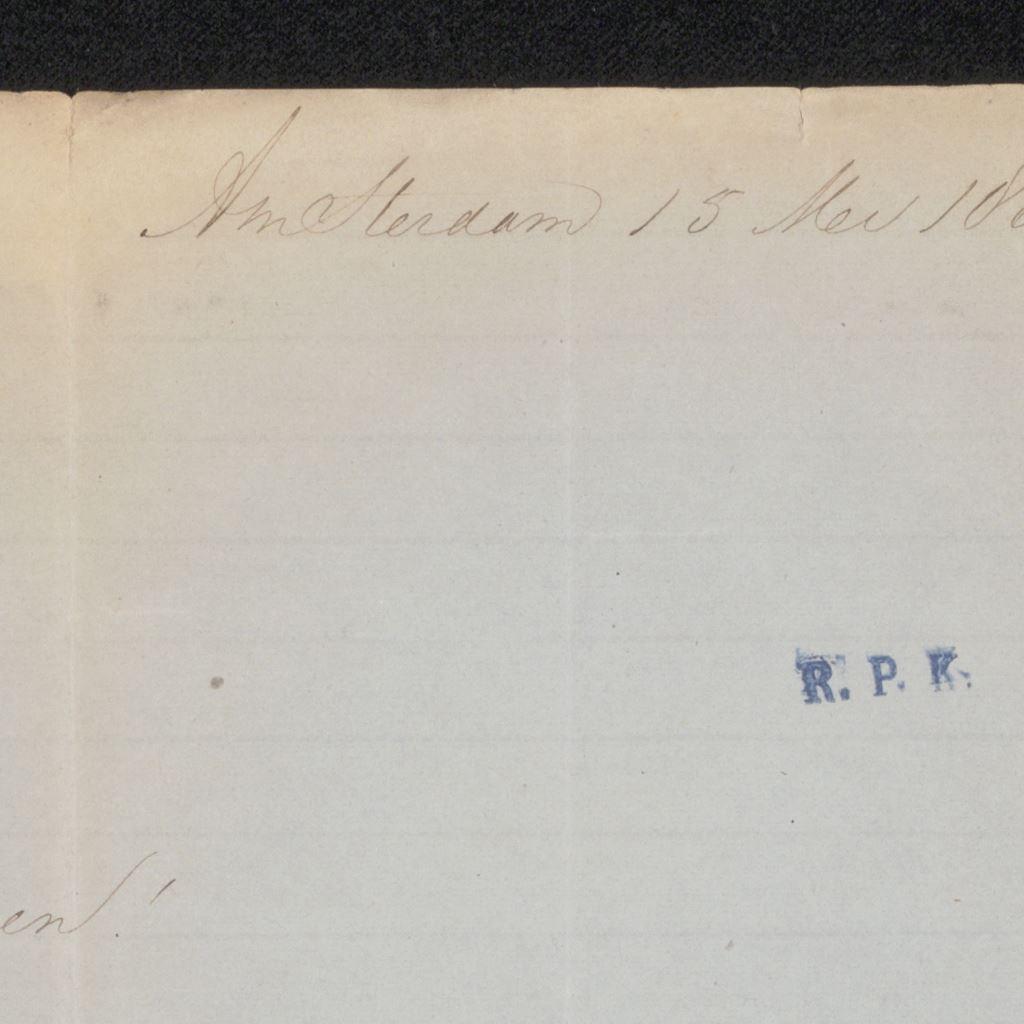 Amsterdam 15 Mei 18
R. P. K.
en!